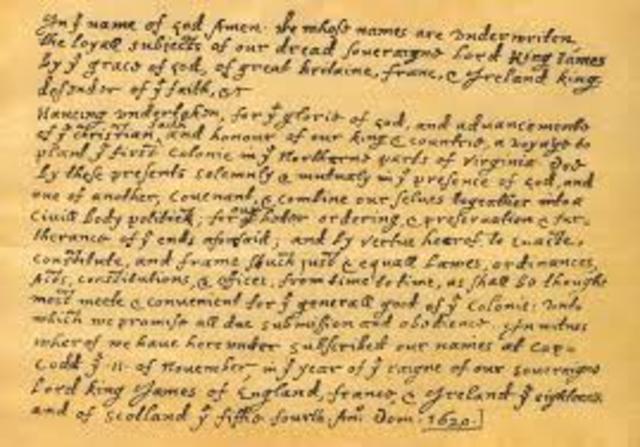 In yͤ name of god Amen. We whose names are underwriten,
the loyall subjects of our dread soveraigne Lord King James
by yͤ grace of god, of great Britaine, franc, & Ireland king,
defender of yͤ faith, &c
Haveing undertaken, for yͤ glorie of god, and advancemente
of yͤ christian faith and honour of our king & countrie, a voyage to
plant yͤ first colonie in yͤ Northerne parts of Virginia. Doe
by these presents solemnly & mutualy in yͤ presence of god, and
one of another, covenant, & combine our selves togeather into a
Civill body politick; for our better ordering, & preservation & fur-
therance of yͤ ends aforesaid; and by vertue hearof to enacte,
constitute, and frame shuch just & equall Lawes, ordinances,
Acts, constitutions, & offices, from time to time, as shall be thought
most meete & convenient for yͤ generall good of yͤ colonie: unto
which we promise all due submission and obedience. In witnes
wherof we have hereunder subscribed our names at Cap-
Codd yͤ .11. of November, in yͤ year of yͤ raigne of our soveraigne
Lord king James of England, france, & Ireland yͤ eighteenth
and of Scotland yͤ fiftie fourth. Ano: Dom. 1620.]